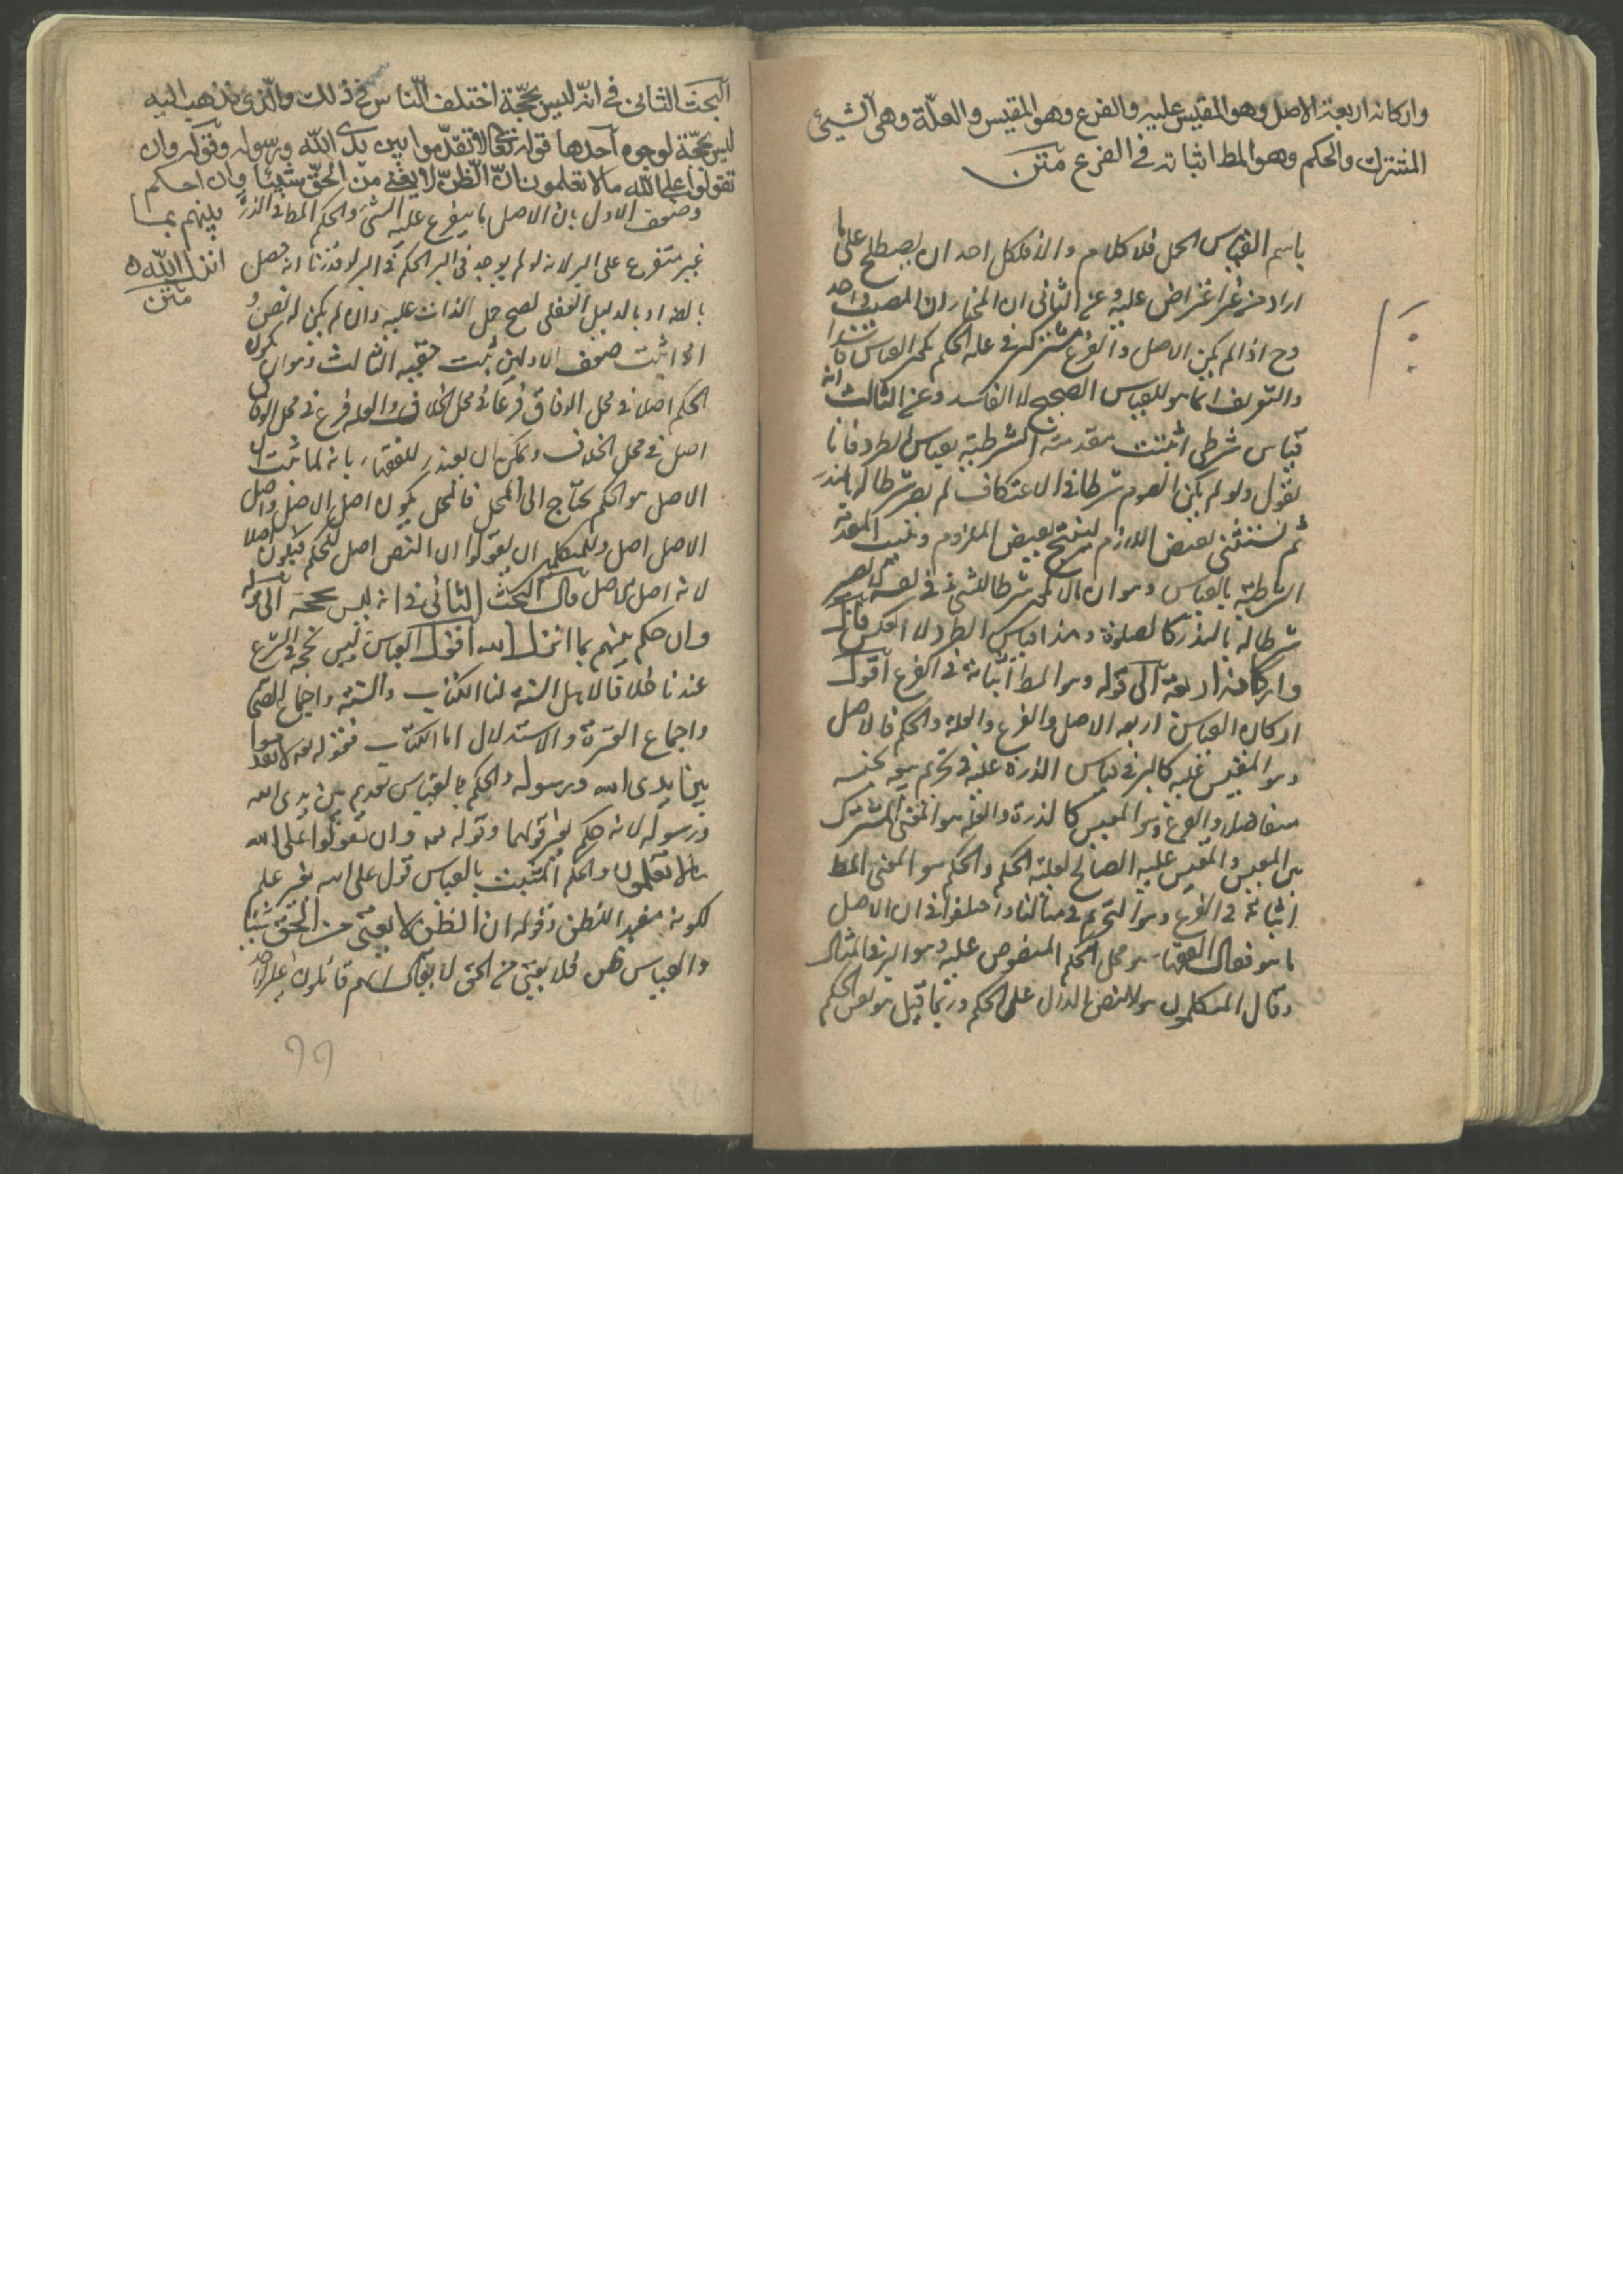 واركانه اربعة الاصل وهو المقيس عليه والفرع وهو المقيس والعلّة وهى الشيئ
المشترك والحكم وهو المط اثباته فى الفرع متن
باسم القياس الحمل فلا كلام والا فلكل احد ان يصطلح على ما
اراد من غير اعتراض عليه وعن الثانى ان المختار ان المصيب واحد
وح اذا لم يكن الاصل والفرع مشتركين فى علة الحكم لم يكن القياس فاسدا
والتعريف انما هو للقياس الصحيح لا الفاسد وعن الثالث انه
قياس شرطى اثبتت مقدمته الشرطية بقياس الطرد فانا
نقول لو لم يكن الصوم شرطا فى الاعتكاف لم يصر شرطا له بالنذر
ثم نستثنى نقيض اللازم لينتج نقيض الملزوم ونثبت المقدمة
الشرطية بالقياس وهو ان ما لا يكون شرطا للشئ فى نفسه لم يصر
شرطا له بالنذر كالصلوة وهذا قياس الطرد لا العكس قال
واركانه اربعة الى قوله وهو المط اثباته فى الفرع اقول
اركان القياس اربعة الاصل والفرع والعلة والحكم فالاصل
هو المقيس عليه كالبر فى قياس الذرة عليه فى تحريم بيعه بجنسه
متفاضلا والفرع هو المقيس كالذرة والعلة هو المعنى المشترك
بين المقيس والمقيس عليه الصالح لعلية الحكم والحكم هو المعنى المط
اثباته فى الفرع وهو التحريم فى مثالنا واختلفوا فى ان الاصل
ما هو فقال الفقهاء هو محل الحكم المنصوص عليه وهو البر فى المثال
وقال المتكلمون هو النص الدال على الحكم وربما قيل هو نفس الحكم
البحث الثانى فى انّه ليس بحجّة اختلف النّاس فى ذلك والّذى نذهب اليه
ليس بحجّة لوجوه احدها قوله تعالى لا تقدّموا بين يدى الله ورسوله وقوله وان
تقولوا على الله ما لا تعلمون انّ الظّنّ لا يغنى من الحقّ شيئا وان احكم
بينهم بما
انزل الله
متن
وضعف الاول بان الاصل ما يتفرع عليه الشئ والحكم المط فى الذرة
غير متفرع على البر لانه لو لم يوجد فى البر الحكم فى البر لو قدرنا انه حصل
بالضرورة او بالدليل العقلى لصح حمل الذات عليه وان لم يكن له نص و
اذا ثبت ضعف الاولين ثبت حقية الثالث وهو ان يكون
الحكم اصلا فى محل الوفاق فرعا فى محل الخلاف والعلة فرع فى محل الوفاق
اصل فى محل الخلاف ويمكن ان يعتذر للفقهاء بانه لما ثبت ان
الاصل هو الحكم يحتاج الى المحل فالمحل يكون اصل الاصل واصل
الاصل اصل وللمتكلمين ان يقولوا ان النص اصل للحكم فيكون اصلا
لانه اصل الاصل قال البحث الثانى فى انه ليس بحجة الى قوله
وان حكم بينهم بما انزل الله اقول القياس ليس بحجة فى الشرع
عندنا خلافا لاهل السنة لنا الكتاب والسنة واجماع الصحابة
واجماع العترة والاستدلال اما الكتاب فقوله تعالى لا تقدموا
بين يدى الله ورسوله والحكم بالقياس تقديم بين يدى الله
ورسوله لانه حكم بغير قولهما وقوله تعالى وان تقولوا على الله
ما لا تعلمون والحكم المثبت بالقياس قول على الله بغير علم
لكونه مفيد الظن وقوله ان الظن لا يغنى من الحق شيئا
والقياس ظن فلا يغنى من الحق لا يقال انهم قائلون